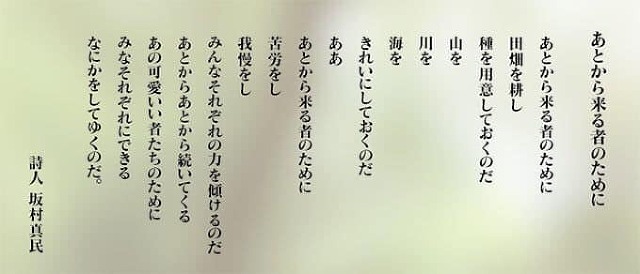 あとから来る者のために
あとから来る者のために
田畑を耕し
種を用意しておくのだ
山を
川を
海を
きれいにしておくのだ
ああ
あとから来る者のために
苦労をし
我慢をし
みんなそれぞれの力を傾けるのだ
あとからあとから続いてくる
あの可愛いい者たちのために
みなそれぞれにできる
なにかをしてゆくのだ。
詩人 坂村真民